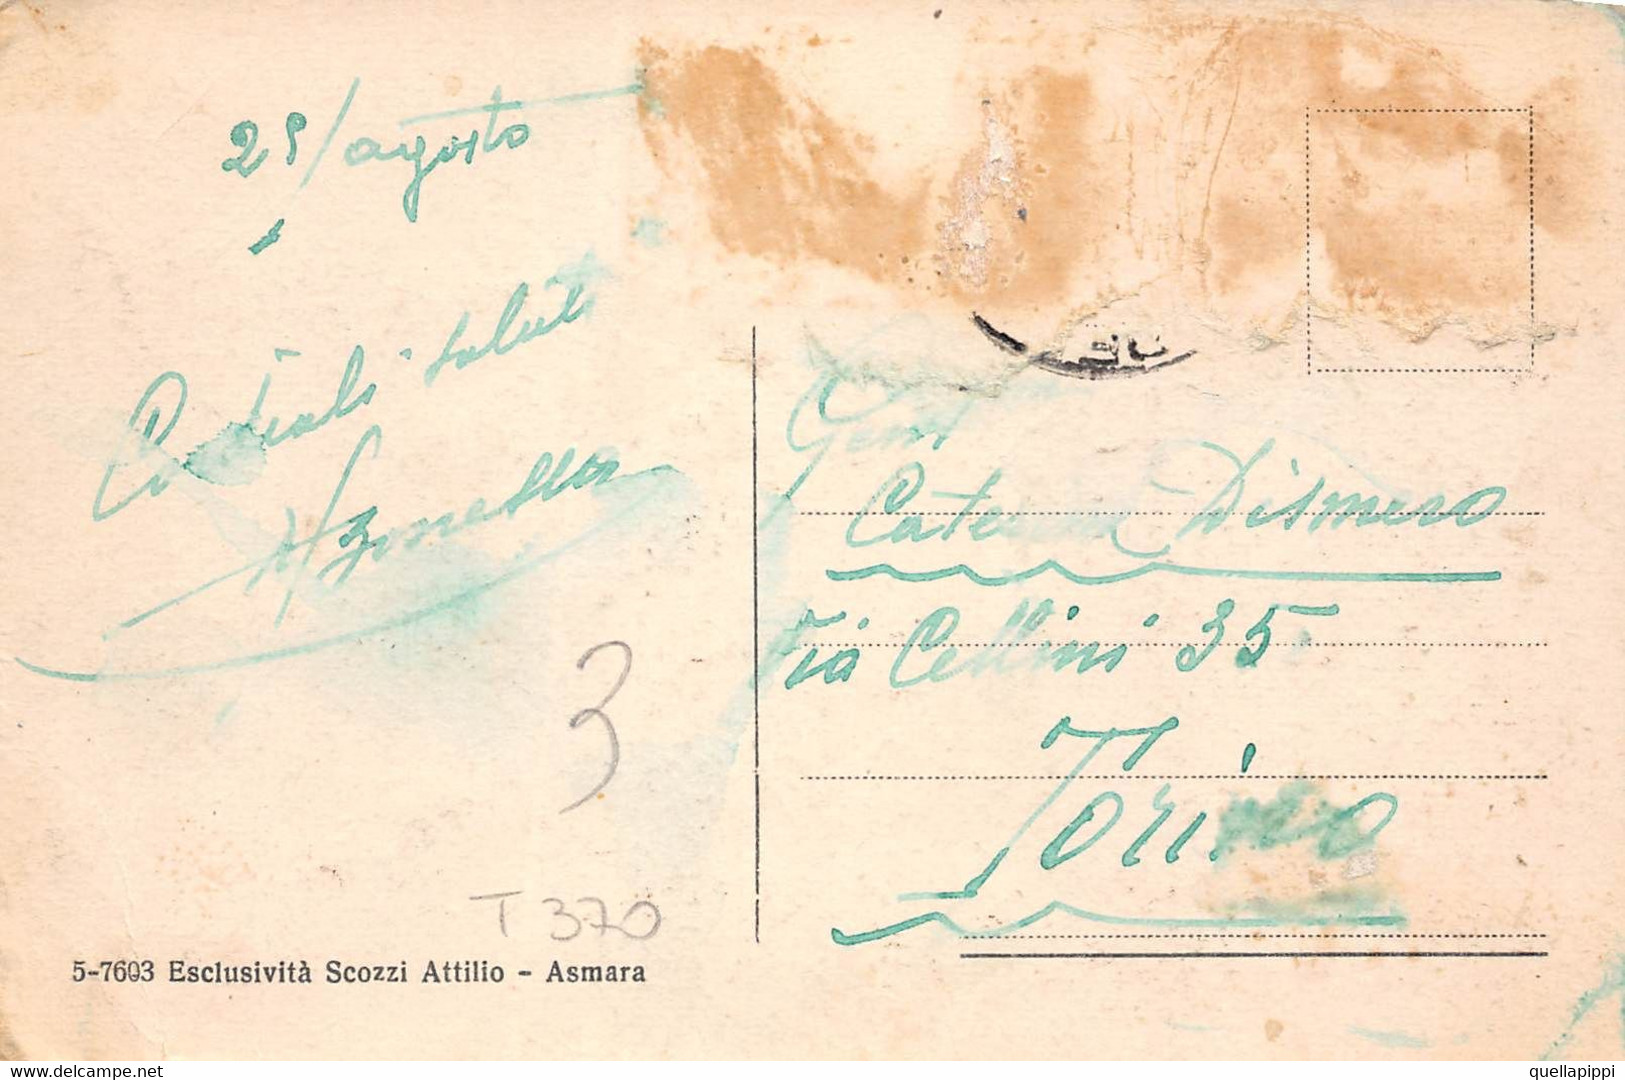 agosto
Cordiali saluti
Gent
Caterina Dismero
Via Cellini 35
Torino
3
T 370
5-7603 Esclusività Scozzi Attilio - Asmara
www.delcampe.net
quellapippi